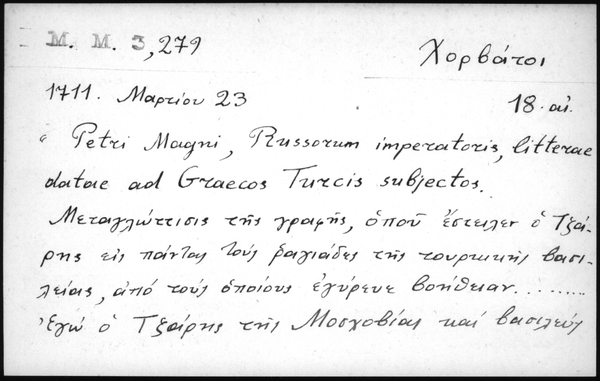 M. M. 3, 279
Χορβάτοι
1711. Μαρτίου 23
18. αἰ.
"Petri Magni, Russorum imperatoris, litterae
datae ad Graecos Turcis subjectos.
Μεταγλώττισις τῆς γραφῆς, ὁποῦ ἔστειλεν ὁ Τζά-
ρης εἰς πάντας τοὺς ραγιάδες τῆς τουρκικῆς βασι-
λείας, ἀπό τοὺς ὁποίους ἐγύρευε βοήθειαν.........
Ἐγώ ὁ Τζάρης τῆς Μοσχοβίας καί βασιλεύς